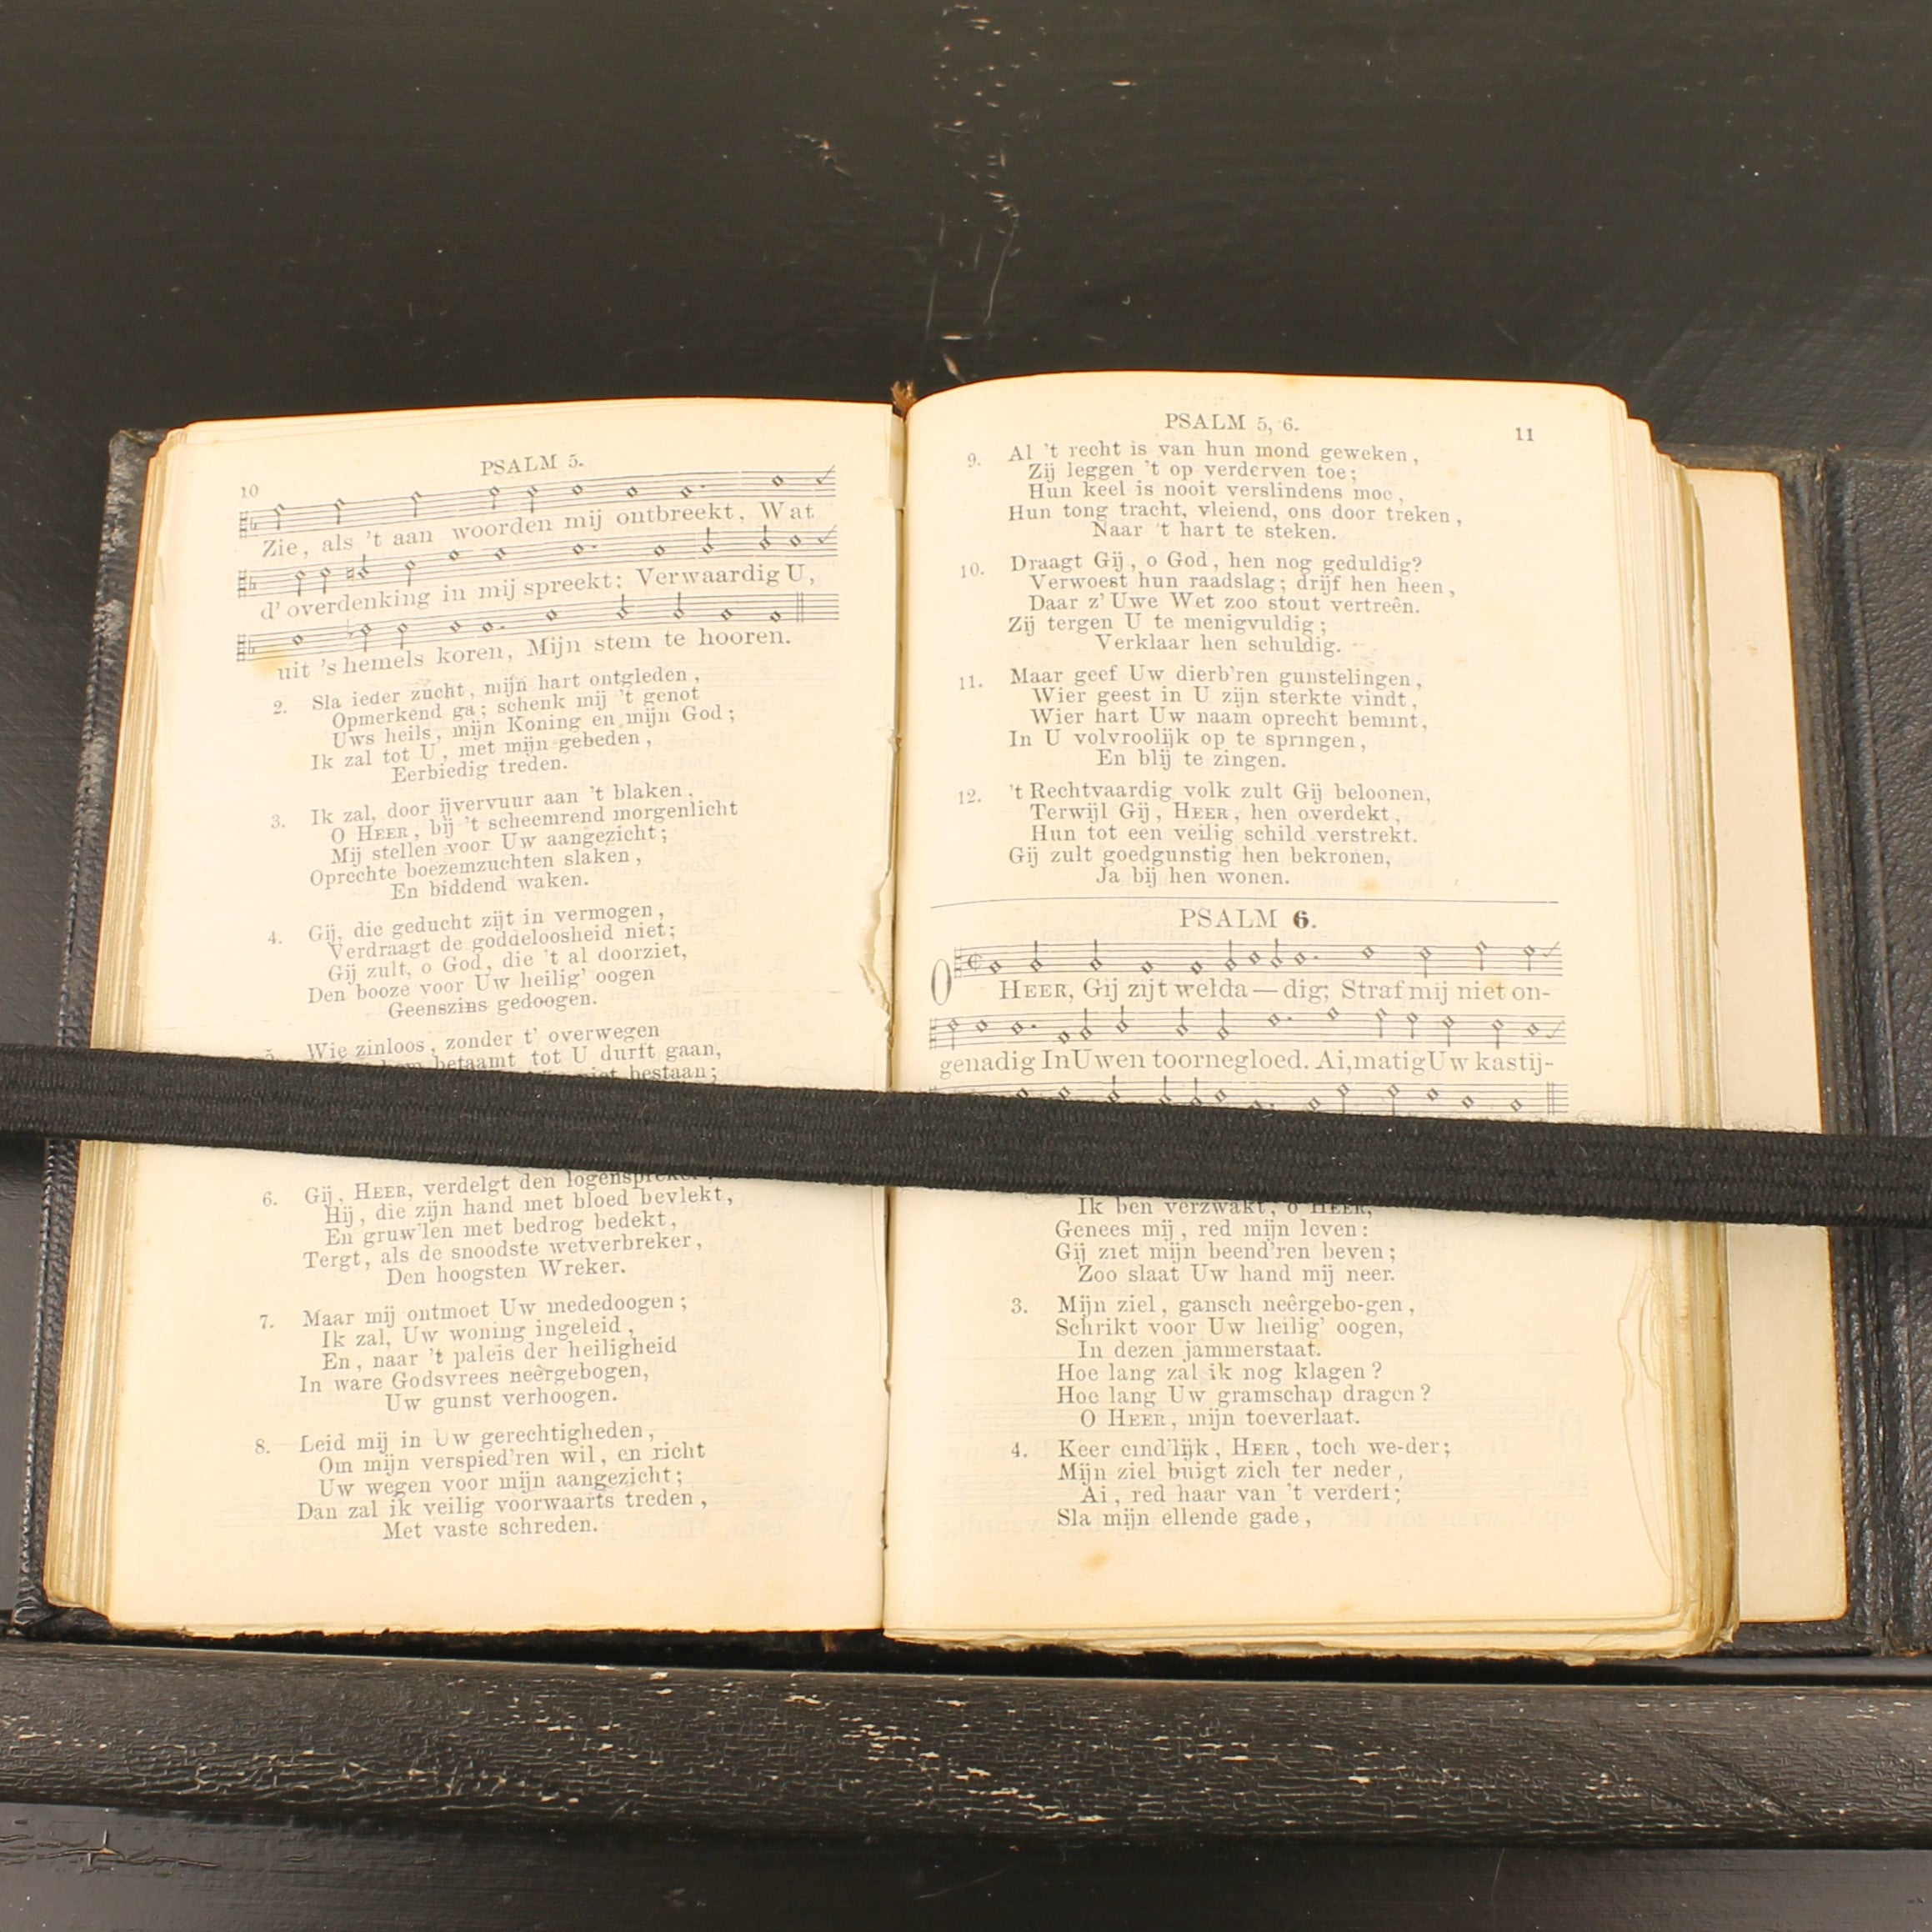 10
PSALM 5.
Zie, als 't aan woorden mij ontbreekt, Wat
d' overdenking in mij spreekt: Verwaardig U,
uit 's hemels koren, Mijn stem te hooren.
2. Sla ieder zucht, mijn hart ontgleden,
Opmerkend ga; schenk mij 't genot
Uws heils, mijn Koning en mijn God;
Ik zal tot U, met mijn gebeden,
Eerbiedig treden.
3. Ik zal, door ijvervuur aan 't blaken,
O HEER, bij 't scheemrend morgenlicht
Mij stellen voor Uw aangezicht;
Oprechte boezemzuchten slaken,
En biddend waken.
4. Gij, die geducht zijt in vermogen,
Verdraagt de goddeloosheid niet;
Gij zult, o God, die 't al doorziet,
Den booze voor Uw heilig' oogen
Geenszins gedoogen.
5. Wie zinloos, zonder t' overwegen
betaamt tot U durft gaan,
niet bestaan;
6. Gij, HEER, verdelgt den
Hij, die zijn hand met bloed bevlekt,
En gruw'len met bedrog bedekt,
Tergt, als de snoodste wetverbreker,
Den hoogsten Wreker.
7. Maar mij ontmoet Uw mededoogen;
Ik zal, Uw woning ingeleid,
En, naar 't paleis der heiligheid
In ware Godsvrees neêrgebogen,
Uw gunst verhoogen.
8. Leid mij in Uw gerechtigheden,
Om mijn verspied'ren wil, en richt
Uw wegen voor mijn aangezicht;
Dan zal ik veilig voorwaarts treden,
Met vaste schreden.
PSALM 5, 6.
11
9. Al 't recht is van hun mond geweken,
Zij leggen 't op verderven toe;
Hun keel is nooit verslindens moe,
Hun tong tracht, vleiend, ons door treken,
Naar 't hart te steken.
10. Draagt Gij, o God, hen nog geduldig?
Verwoest hun raadslag; drijf hen heen,
Daar z' Uwe Wet zoo stout vertreên.
Zij tergen U te menigvuldig;
Verklaar hen schuldig.
11. Maar geef Uw dierb'ren gunstelingen,
Wier geest in U zijn sterkte vindt,
Wier hart Uw naam oprecht bemint,
In U volvroolijk op te springen,
En blij te zingen.
12. 't Rechtvaardig volk zult Gij beloonen,
Terwijl Gij, HEER, hen overdekt,
Hun tot een veilig schild verstrekt.
Gij zult goedgunstig hen bekronen,
Ja bij hen wonen.
PSALM 6.
O HEER, Gij zijt welda—dig; Straf mij niet on-
genadig In Uwen toornegloed. Ai, matig Uw kastij-
Ik ben verzwakt, o HEER,
Genees mij, red mijn leven:
Gij ziet mijn beend'ren beven;
Zoo slaat Uw hand mij neer.
3. Mijn ziel, gansch neêrgebo-gen,
Schrikt voor Uw heilig' oogen,
In dezen jammerstaat.
Hoe lang zal ik nog klagen?
Hoe lang Uw gramschap dragen?
O HEER, mijn toeverlaat.
4. Keer eind'lijk, HEER, toch we-der;
Mijn ziel buigt zich ter neder,
Ai, red haar van 't verderf;
Sla mijn ellende gade,